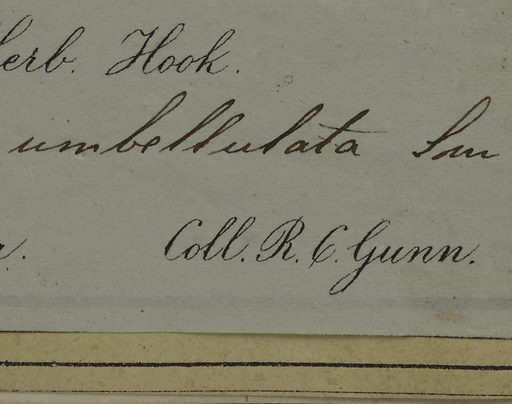 Herb. Hook.
umbellulata Sm
Coll. R. C. Gunn.